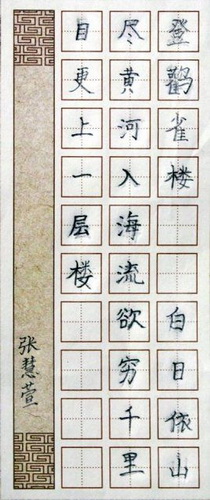 登鹳雀楼 白日依山
尽黄河入海流欲穷千里
目更上一层楼
张慧萱